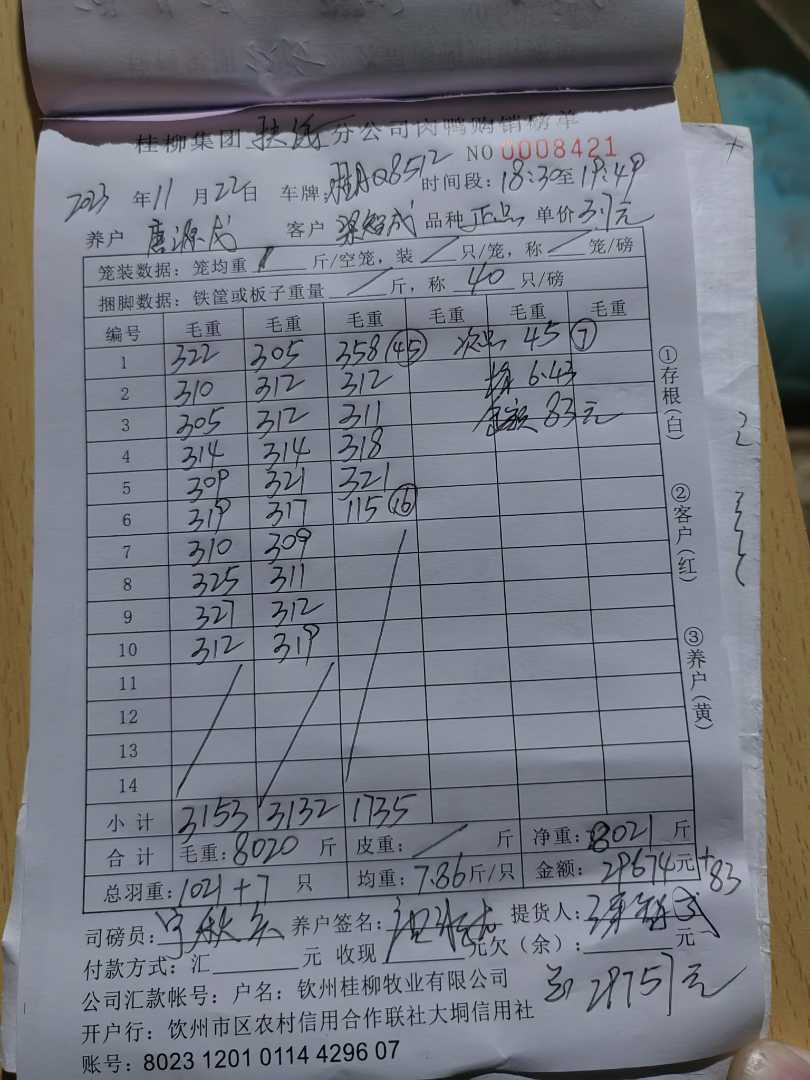 桂柳集团扶绥分公司肉鸭购销磅单
NO 0008421
2023年11月22日 车牌:桂AQ8512 时间段:18:30至19:49
养户 唐源成 客户 梁智成 品种 正品 单价 3.7元
笼装数据:笼均重 / 斤/空笼,装 / 只/笼,称 / 笼/磅
捆脚数据:铁筐或板子重量 / 斤,称 40 只/磅
编号 毛重 毛重 毛重 毛重 毛重 毛重
1 322 305 358 (45) 次品 45 (7)
2 310 312 312 均 6.43
3 305 312 311 金额 83元
4 314 314 318
5 309 321 321
6 319 317 115 (16)
7 310 309
8 325 311
9 327 312
10 312 319
11
12
13
14
小计 3153 3132 1735
合计 毛重:8020 斤 皮重: / 斤 净重:8021 斤
总羽重:1021+7 只 均重:7.86斤/只 金额:29674元+83
司磅员: 养户签名: 提货人:
付款方式:汇 元 收现 元欠(余): 元
总29757元
公司汇款帐号:户名:钦州桂柳牧业有限公司
开户行:饮州市区农村信用合作联社大垌信用社
账号:8023 1201 0114 4296 07
①存根(白)
②客户(红)
③养户(黄)